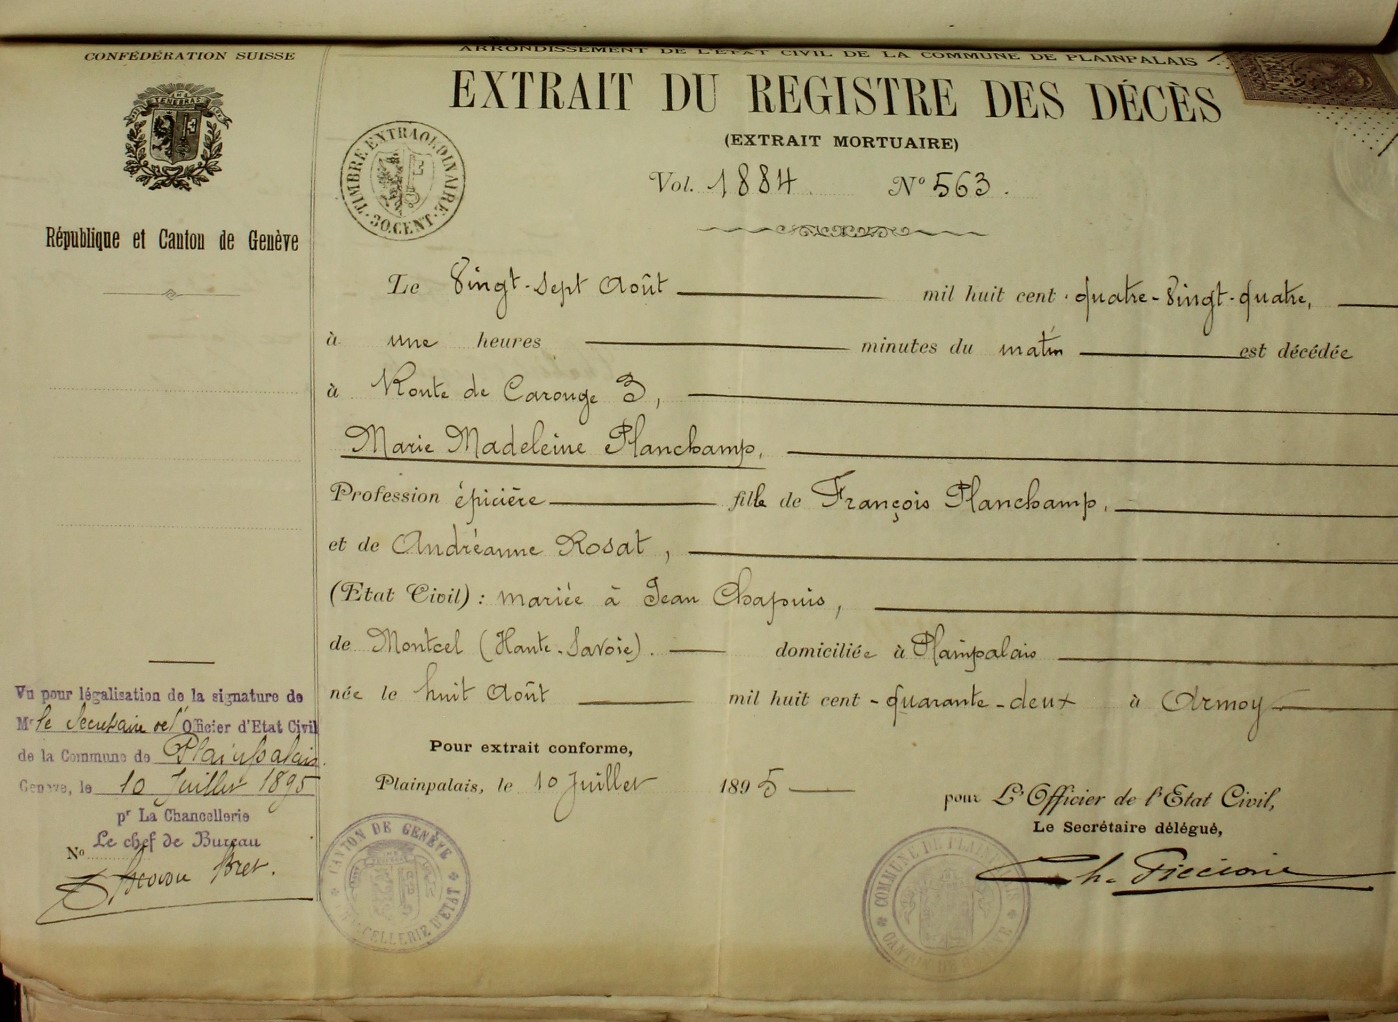 CONFÉDÉRATION SUISSE
POST TENEBRAS LUX
République et Canton de Genève
ARRONDISSEMENT DE L'ÉTAT CIVIL DE LA COMMUNE DE PLAINPALAIS
EXTRAIT DU REGISTRE DES DÉCÈS
(EXTRAIT MORTUAIRE)
TIMBRE EXTRAORDINAIRE
30 CENT.
Vol. 1884. N° 563.
Le Vingt-sept Août mil huit cent quatre-Vingt-quatre,
à une heures minutes du matin est décédée
à Route de Carouge 3,
Marie Madeleine Planchamp,
Profession épicière fille de François Planchamp,
et de Andréanne Rosat,
(Etat Civil) : mariée à Jean Chapuis,
de Montcel (Haute-Savoie). domiciliée à Plainpalais
née le huit Août mil huit cent -quarante-deux à Armoy
Pour extrait conforme,
Plainpalais, le 10 Juillet 1895
pour L'Officier de l'Etat Civil,
Le Secrétaire délégué,
Ch. Piccioni
Vu pour légalisation de la signature de
Mr le Secrétaire de l'Officier d'Etat Civil
de la Commune de Plainpalais.
Genève, le 10 Juillet 1895
pr La Chancellerie
Le chef de Bureau
No
Bret.
CANTON DE GENÈVE
CHANCELLERIE D'ETAT
COMMUNE DE PLAINPALAIS
CANTON DE GENÈVE